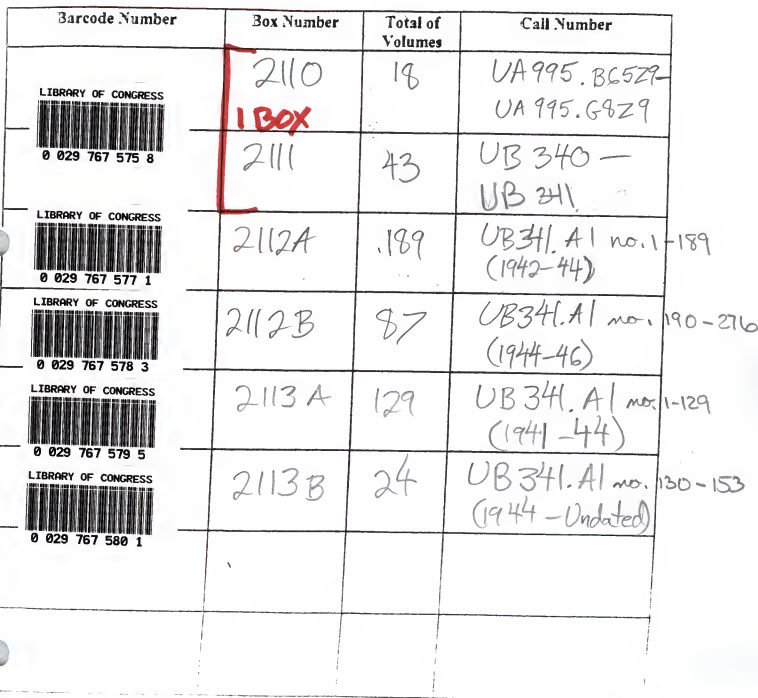 Barcode Number Box Number Total of Volumes Call Number
LIBRARY OF CONGRESS
0 029 767 575 8
1 BOX
2110 18 UA995.B65Z9-
UA995.G8Z9
2111 43 UB 340 -
UB 341
LIBRARY OF CONGRESS
0 029 767 577 1
2112A 189 UB341.A1 no. 1-189
(1942-44)
LIBRARY OF CONGRESS
0 029 767 578 3
2112B 87 UB341.A1 no. 190-276
(1944-46)
LIBRARY OF CONGRESS
0 029 767 579 5
2113A 129 UB 341.A1 no. 1-129
(1941-44)
LIBRARY OF CONGRESS
0 029 767 580 1
2113B 24 UB341.A1 no. 130-153
(1944-Undated)